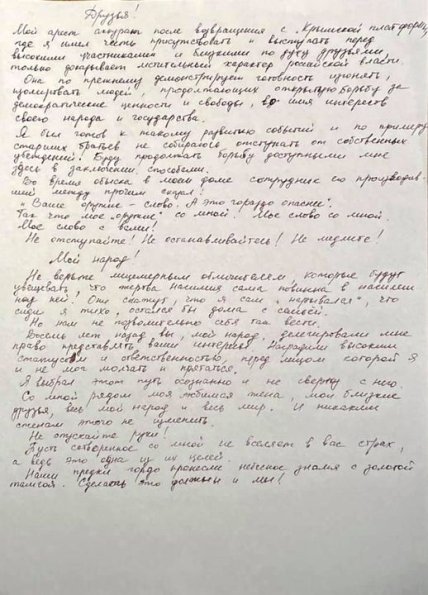 Друзья!
Мой арест аккурат после возвращения с „Крымской платформы",
где я имел честь присутствовать и выступать перед
высокими участниками и близкими по духу друзьями,
только доказывает мстительный характер российской власти.
Она по прежнему демонстрирует готовность изгонять,
изолировать людей, продолжающих открытую борьбу за
демократические ценности и свободы, во имя интересов
своего народа и государства.
Я был готов к такому развитию событий и по примеру
старших братьев не собираюсь отступать от собственных
убеждений! Буду продолжать борьбу доступными мне
здесь в заключении способами.
Во время обыска в моем доме сотрудник его производив-
ший между прочим сказал:
„Ваше оружие - слово. А это гораздо опаснее".
Так что мое „оружие" со мной! Мое слово со мной.
Мое слово с вами!
Не отступайте! Не останавливайтесь! Не медлите!
Мой народ!
Не верьте лицемерным обличителям, которые будут
увещевать, что жертва насилия сама повинна в насилии
над ней! Они скажут, что я сам „нарывался", что
сиди я тихо, остался бы дома с семьей.
Но нам не позволительно себя так вести.
Восемь лет назад вы, мой народ, делегировали мне
право представлять ваши интересы. Наградили высоким
статусом и ответственностью, перед лицом которой я
и не мог молчать и прятаться.
Я выбрал этот путь осознанно и не сверну с него.
Со мной рядом моя любимая жена, мои близкие
друзья, весь мой народ и весь мир. И никаким
стенам этого не изменить.
Не опускайте руки!
Пусть сотворенное со мной не вселяет в вас страх,
а ведь это одна из их целей.
Наши предки гордо пронесли небесное знамя с золотой
тамгой. Сделать это должны и мы!